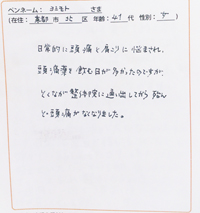 ペンネーム：ヨシモト さま
(在住：京都 市 北 区 年齢：41 代 性別：女)
日常的に頭痛と肩こりに悩まされ、
頭痛薬を飲む日が多かったのですが、
とくなが整体院に通い出してから殆ん
ど頭痛がなくなりました。